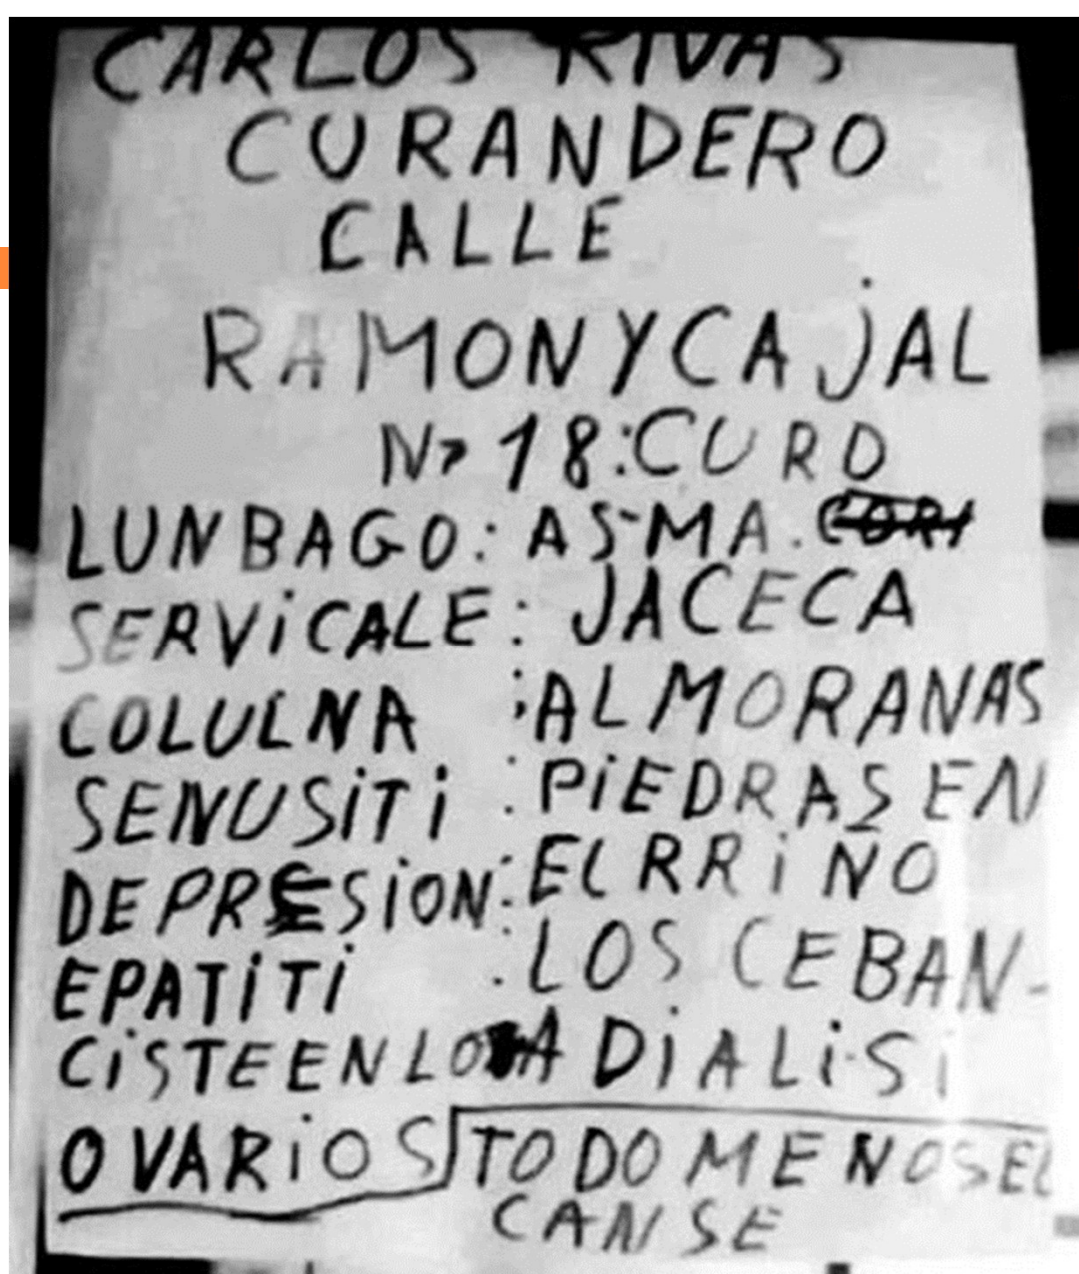 CARLOS RIVAS
CURANDERO
CALLE
RAMONYCAJAL
Nº 18:CURO
LUNBAGO: ASMA.
SERViCALE: JACECA
COLULNA :ALMORANAS
SENUSiTi :PiEDRAS EN
DEPRESiON: EL RRiÑO
EPATiTi . LOS CEBAN-
CiSTEENLO A DiALiSi
OVARiOS TODO MENOS EL
CANSE